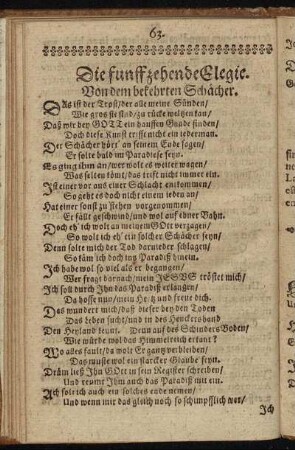 63.
Die funffzehende Elegie.
Von dem bekehrten Schächer.
DAs ist der Trost/der alle meine Sünden/
Wie gros sie sind/zu rücke weltzen kan/
Daß wir bey GOTT ein hauffen Gnade finden/
Doch diese Kunst trifft nicht ein iederman.
Der Schächer hört' an seinem Ende sagen/
Er solte bald im Paradiese seyn.
Es ging ihm an/wer wolt es weiter wagen/
Was selten kömt/das trifft nicht immer ein.
Ist einer vor aus einer Schlacht entkommen/
So geht es doch nicht einem ieden an/
Hat einer sonst zu fliehen vorgenommen/
Er fällt geschwind/und wol auf ebner Bahn.
Doch eh' ich wolt an meinem GOtt verzagen/
So wolt ich eh' ein solcher Schächer seyn/
Denn solte mich der Tod darnieder schlagen/
So käm ich doch ins Paradiß hinein.
Ich habe wol so viel als er begangen/
Wer fragt darnach/mein JESUS tröstet mich/
Ich soll durch Ihn das Paradiß erlangen/
Da hoffe nun/mein Hertz und freue dich.
Das wundert mich/daß dieser bey den Todten
Das Leben sucht/und in des Henckers hand
Den Heyland kennt. Denn auf des Schinders Boden/
Wie würde wol das Himmelreich erkant?
Wo alles fault/da wolt Er gantz verbleiben/
Das muste wol ein starcker Glaube seyn.
Drüm ließ Ihn GOtt in sein Register schreiben/
Und räumt Ihm auch das Paradiß mit ein.
Ach solt ich auch ein solches ende nemen/
Und wenn mir das gleich noch so schimpfflich wer/
Ich